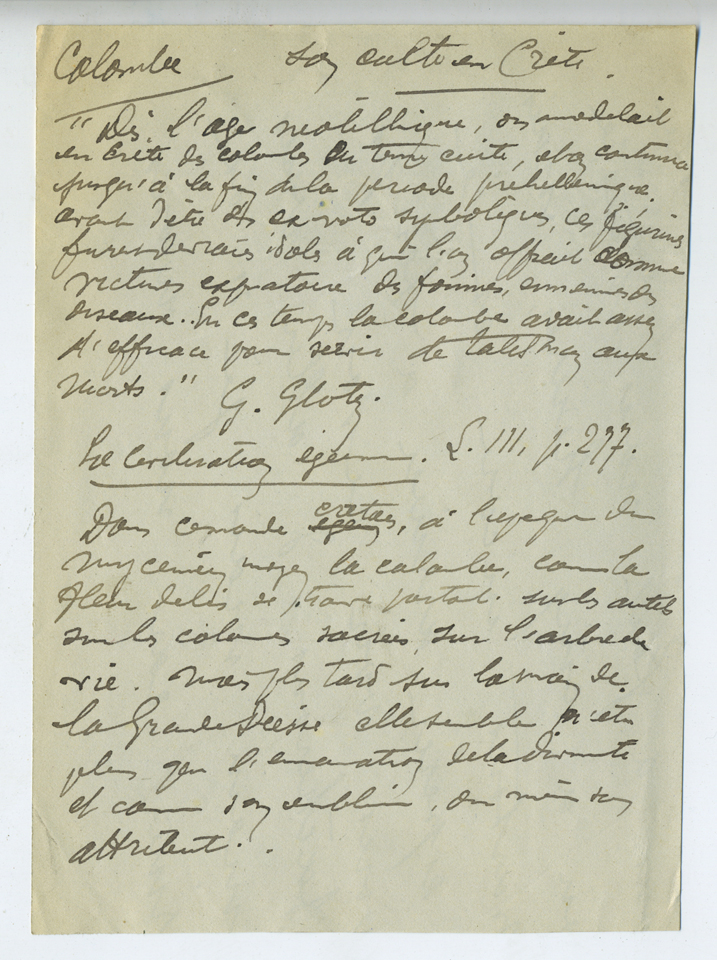 Colombe son culte en Crète.
"Dès l'âge néolithique, on modelait
en Crète des colombes en terre cuite, et on continua
jusqu'à la fin de la periode préhellenique.
avant d'être des ex-voto symboliques, ces figurines
furent de vraies idoles à qui l'on offrait comme
victimes expiatoire des fouines, ennemies des
oiseaux. En ces temps la colombe avait assez
d'efficace pour servir de talisman aux
morts."
G. Glotz.
La Civilisation égéenne. L. III, p. 277.
Dans ce monde cretois, à l'epoque du
myceneen moyen la colombe, comme la
fleur de lis se trouve partout. sur les autels
sur les colones sacrées, sur l'arbre de
vie. Mais plus tard sur la main de
la Grande Déesse elle semble n'etre
plus que l'emanation de la divinité
et comme son embleme, ou même son
attribut.